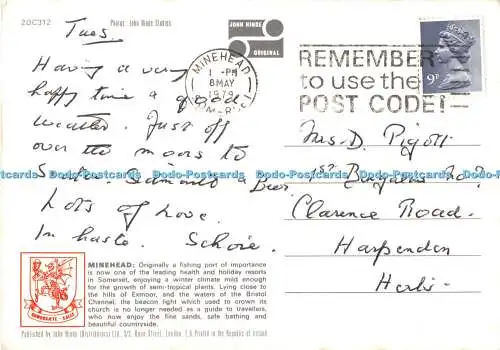 2DC312
Photo: John Hinde Studios
JOHN HINDE
ORIGINAL
MINEHEAD
1 - PM
8 MAY
1979
REMEMBER
to use the
POST CODE!
9P
Tues.
Having a very
happy time & good
weather. Just off
over the moors to
Lots of Love.
In haste.
Mrs. D. Pigott
Clarence Road.
Harpenden
Herts.
Dodo-Postcards Dodo-Postcards Dodo-Postcards Dodo-Postcards Dodo-Postcards
MINEHEAD: Originally a fishing port of importance
is now one of the leading health and holiday resorts
in Somerset, enjoying a winter climate mild enough
for the growth of semi-tropical plants. Lying close to
the hills of Exmoor, and the waters of the Bristol
Channel, the beacon light which used to crown its
church is no longer needed as a guide to travellers,
who now enjoy the fine sands, safe bathing and
beautiful countryside.
Published by John Hinde (Distributors) Ltd.,
London, Printed in the Republic of Ireland